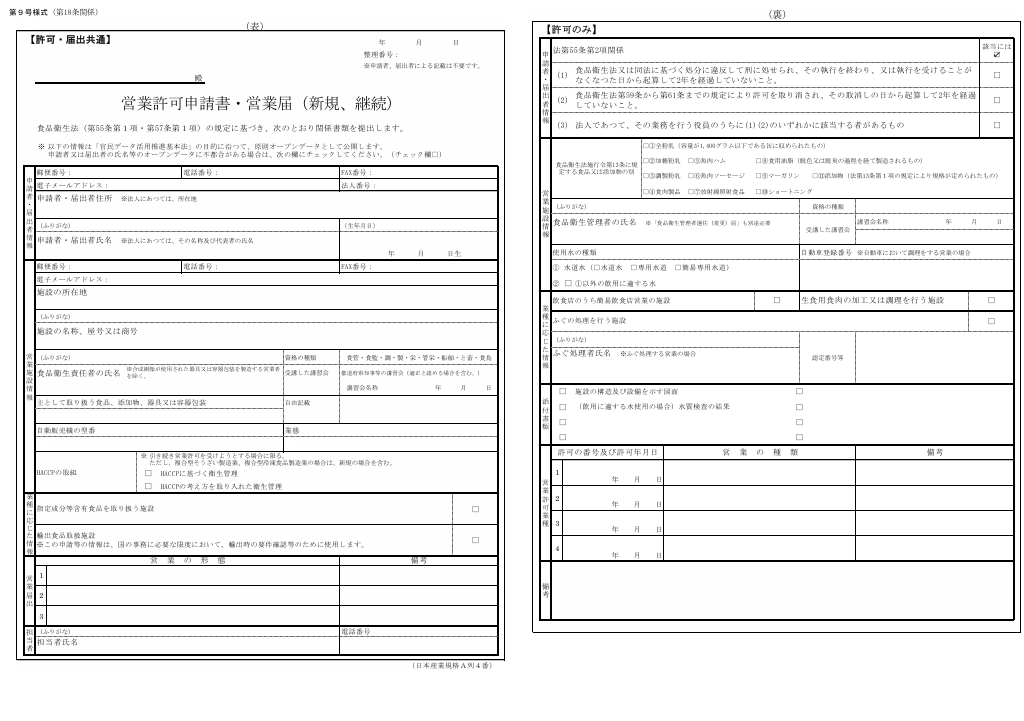 第９号様式（第18条関係）
（表）
【許可・届出共通】
年 月 日
整理番号：
※申請者、届出者による記載は不要です。
殿
営業許可申請書・営業届（新規、継続）
食品衛生法（第55条第１項・第57条第１項）の規定に基づき、次のとおり関係書類を提出します。
※ 以下の情報は「官民データ活用推進基本法」の目的に沿って、原則オープンデータとして公開します。
申請者又は届出者の氏名等のオープンデータに不都合がある場合は、次の欄にチェックしてください。（チェック欄□）
申請者・届出者情報
郵便番号： 電話番号： FAX番号：
電子メールアドレス： 法人番号：
申請者・届出者住所 ※法人にあつては、所在地
（ふりがな） （生年月日）
申請者・届出者氏名 ※法人にあつては、その名称及び代表者の氏名
年 月 日生
営業施設情報
郵便番号： 電話番号： FAX番号：
電子メールアドレス：
施設の所在地
（ふりがな）
施設の名称、屋号又は商号
（ふりがな） 資格の種類 食管・食監・調・製・栄・管栄・船舶・と畜・食鳥
食品衛生責任者の氏名 ※合成樹脂が使用された器具又は容器包装を製造する営業者を除く。
受講した講習会 都道府県知事等の講習会（適正と認める場合を含む。）
講習会名称 年 月 日
主として取り扱う食品、添加物、器具又は容器包装 自由記載
自動販売機の型番 業態
HACCPの取組
※ 引き続き営業許可を受けようとする場合に限る。
ただし、複合型そうざい製造業、複合型冷凍食品製造業の場合は、新規の場合を含む。
□ HACCPに基づく衛生管理
□ HACCPの考え方を取り入れた衛生管理
業種に応じた情報
指定成分等含有食品を取り扱う施設 □
輸出食品取扱施設
※この申請等の情報は、国の事務に必要な限度において、輸出時の要件確認等のために使用します。 □
営業届出
営 業 の 形 態 備考
1
2
3
担当者
（ふりがな） 電話番号
担当者氏名
（日本産業規格Ａ列４番）
（裏）
【許可のみ】
申請者・届出者情報
法第55条第２項関係 該当には☑
（1） 食品衛生法又は同法に基づく処分に違反して刑に処せられ、その執行を終わり、又は執行を受けることが
なくなつた日から起算して2年を経過していないこと。 □
（2） 食品衛生法第59条から第61条までの規定により許可を取り消され、その取消しの日から起算して2年を経過
していないこと。 □
（3） 法人であつて、その業務を行う役員のうちに(1)(2)のいずれかに該当する者があるもの □
営業施設情報
食品衛生法施行令第13条に規定する食品又は添加物の別
□①全粉乳（容量が1,400グラム以下である缶に収められたもの）
□②加糖粉乳 □⑤魚肉ハム □⑧食用油脂（脱色又は脱臭の過程を経て製造されるもの）
□③調製粉乳 □⑥魚肉ソーセージ □⑨マーガリン □⑪添加物（法第13条第１項の規定により規格が定められたもの）
□④食肉製品 □⑦放射線照射食品 □⑩ショートニング
（ふりがな） 資格の種類
食品衛生管理者の氏名 ※「食品衛生管理者選任（変更）届」も別途必要
受講した講習会 講習会名称 年 月 日
使用水の種類 自動車登録番号 ※自動車において調理をする営業の場合
① 水道水（□水道水 □専用水道 □簡易専用水道）
② □ ①以外の飲用に適する水
業種に応じた情報
飲食店のうち簡易飲食店営業の施設 □ 生食用食肉の加工又は調理を行う施設 □
ふぐの処理を行う施設 □
（ふりがな）
ふぐ処理者氏名 ※ふぐ処理する営業の場合 認定番号等
添付書類
□ 施設の構造及び設備を示す図面 □
□ （飲用に適する水使用の場合）水質検査の結果 □
□ □
□ □
営業許可業種
許可の番号及び許可年月日 営 業 の 種 類 備考
1 年 月 日
2 年 月 日
3 年 月 日
4 年 月 日
備考